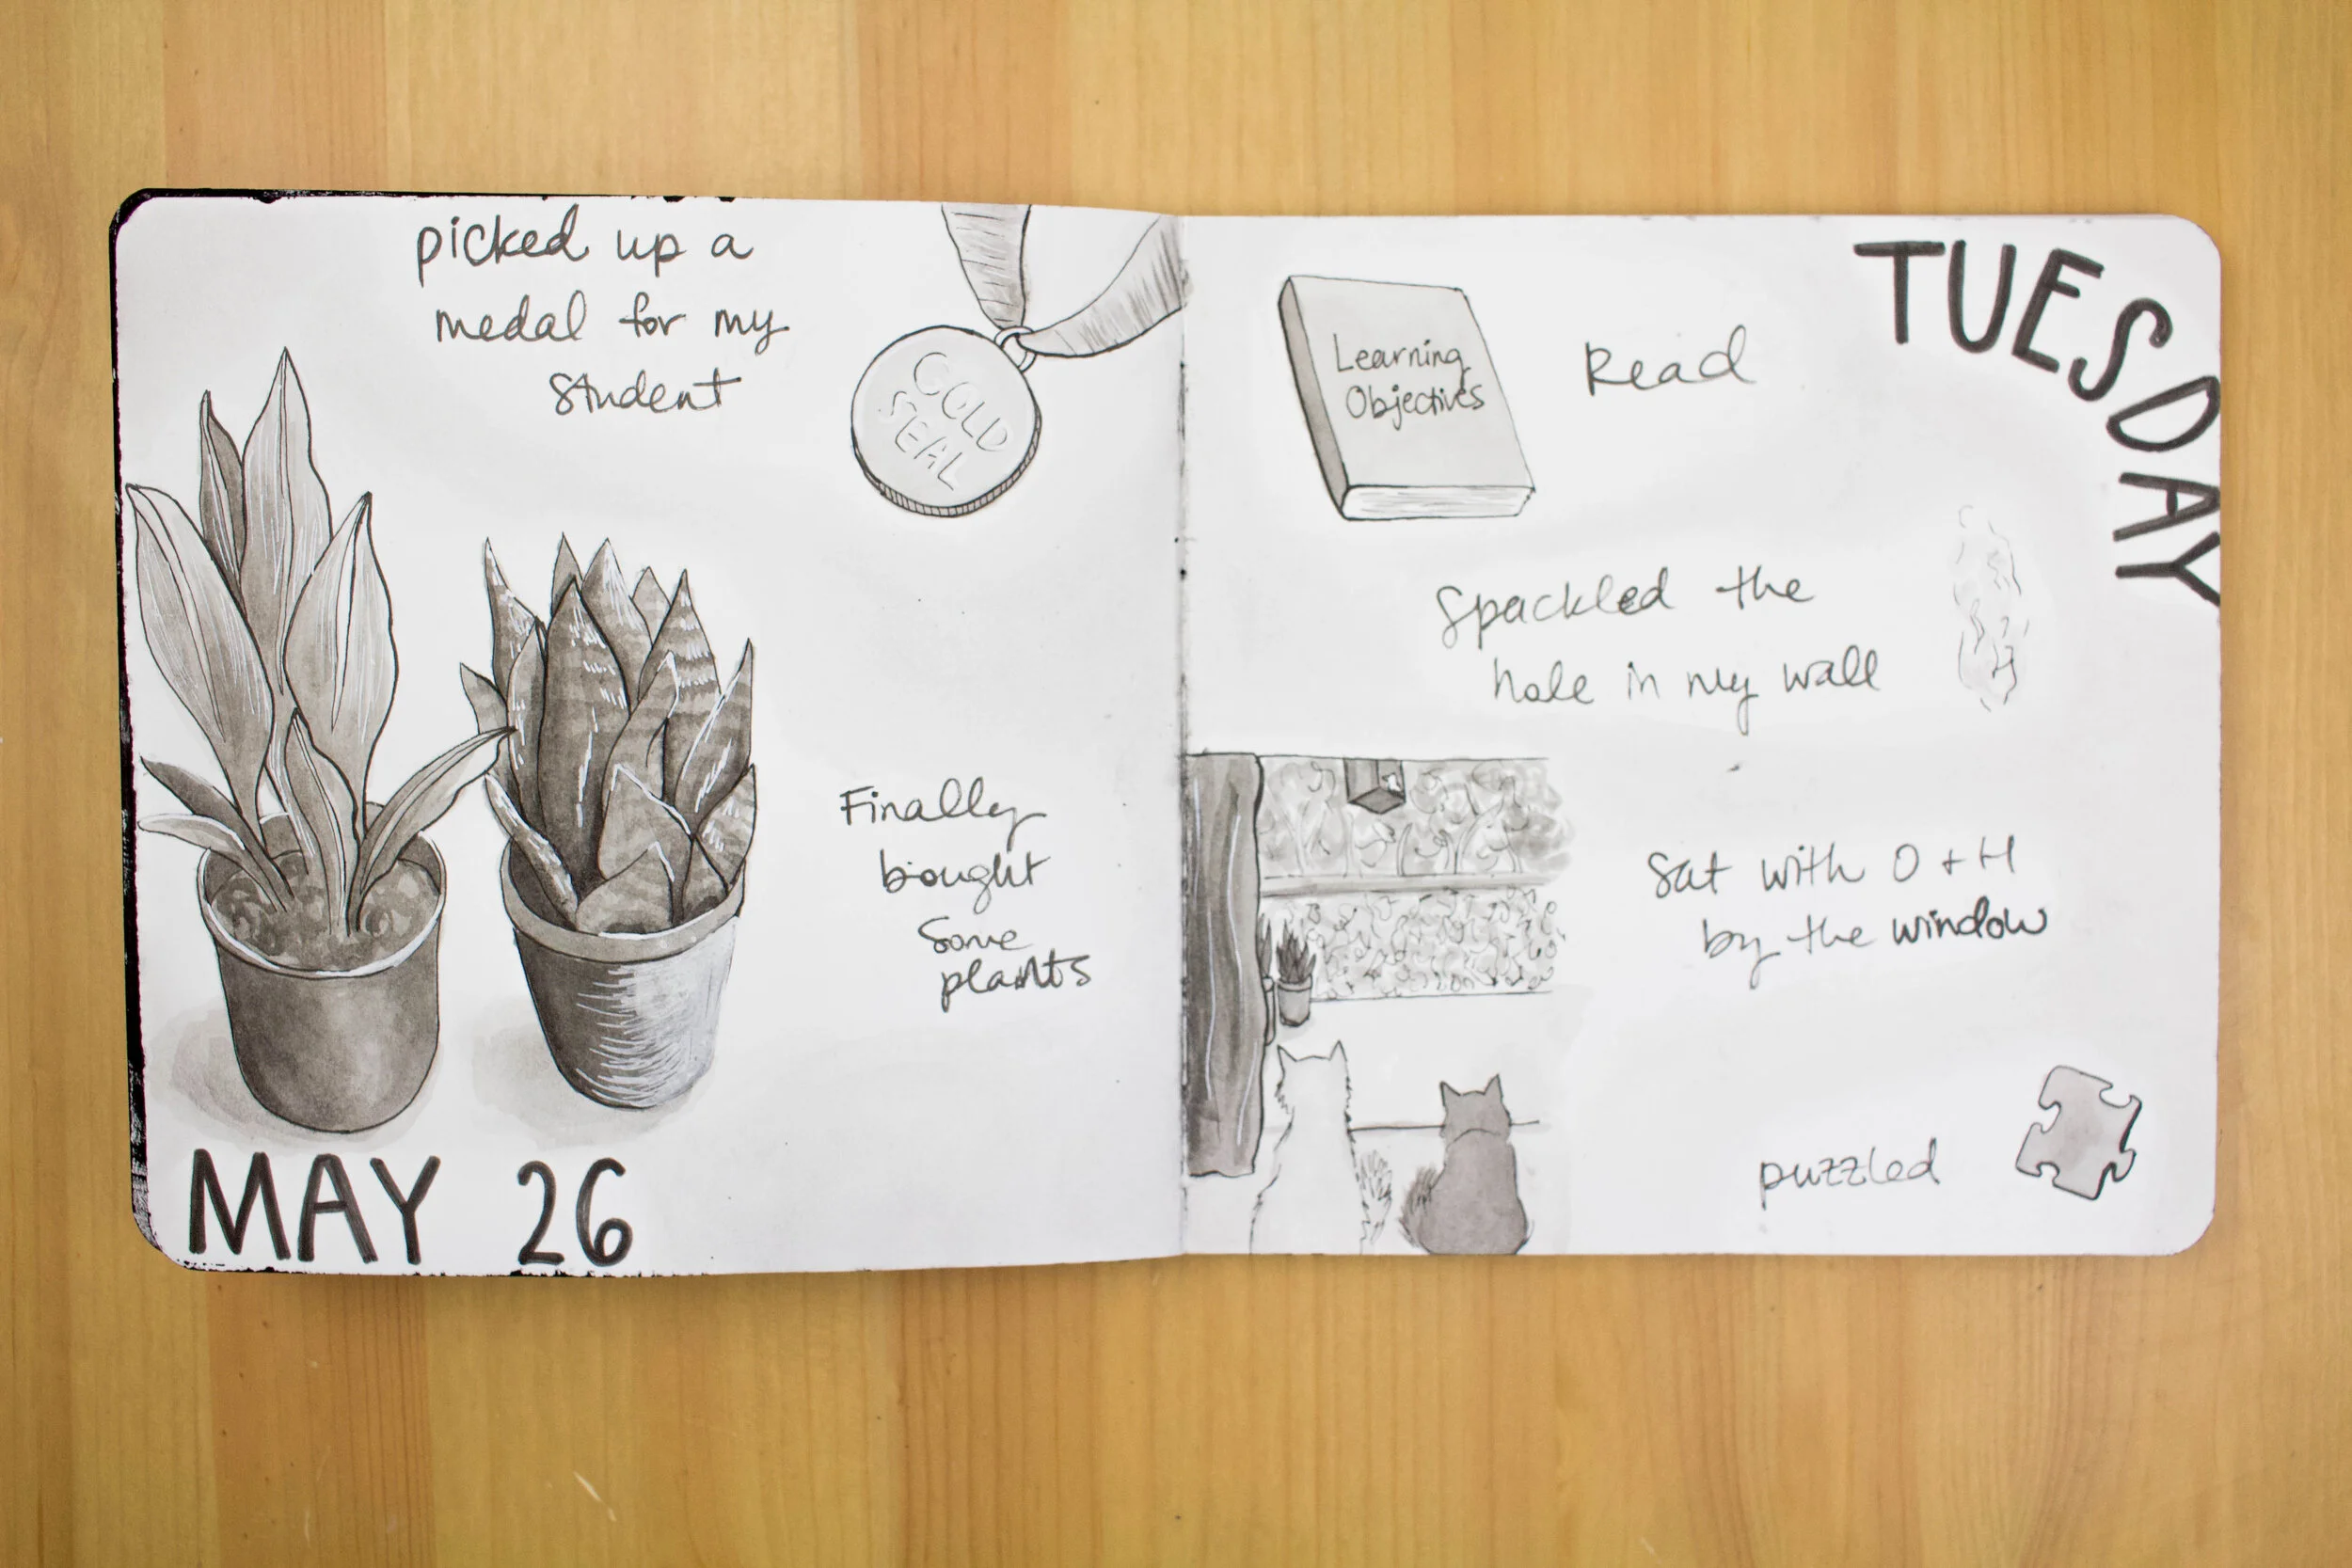 picked up a
medal for my
student
GOLD
SEAL
Finally
bought
some
plants
MAY 26
TUESDAY
Learning
Objectives
Read
Spackled the
hole in my wall
Sat with O + H
by the window
puzzled